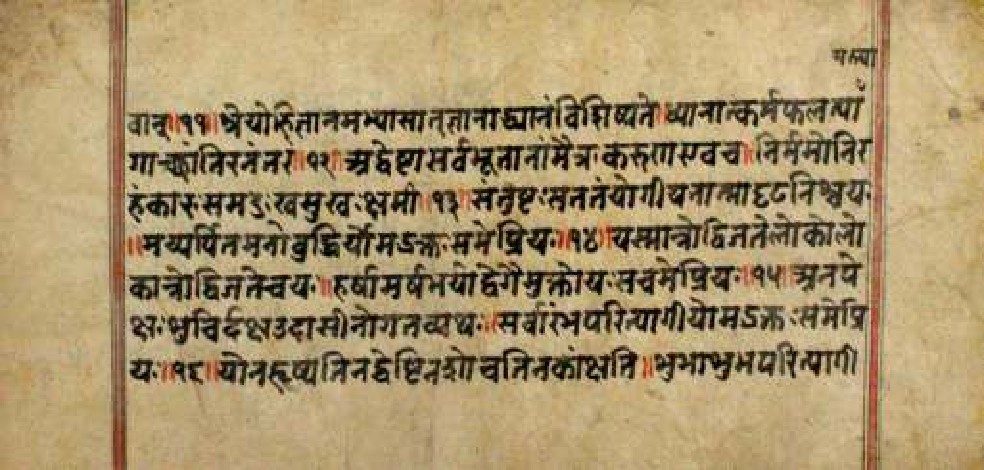 वान् ॥११॥ श्रेयोहिज्ञानमभ्यासात्ज्ञानाद्ध्यानंविशिष्यते ध्यानात्कर्मफलत्या
गाच्छांतिरनंतरं ॥१२॥ अद्वेष्टासर्वभूतानांमैत्रःकरुणएवच ॥ निर्ममोनिर
हंकारःसमदुःखसुखःक्षमी ॥१३॥ संतुष्टःसततंयोगीयतात्मादृढनिश्चयः
॥ मय्यर्पितमनोबुद्धिर्योमद्भक्तःसमेप्रियः ॥१४॥ यस्मान्नोद्विजतेलोकोलो
कान्नोद्विजतेचयः ॥ हर्षामर्षभयोद्वेगैर्मुक्तोयःसचमेप्रियः ॥१५॥ अनपे
क्षःशुचिर्दक्षउदासीनोगतव्यथः ॥ सर्वारंभपरित्यागीयोमद्भक्तःसमेप्रि
यः ॥१६॥ योनहृष्यतिनद्वेष्टिनशोचतिनकांक्षति ॥ शुभाशुभपरित्यागी